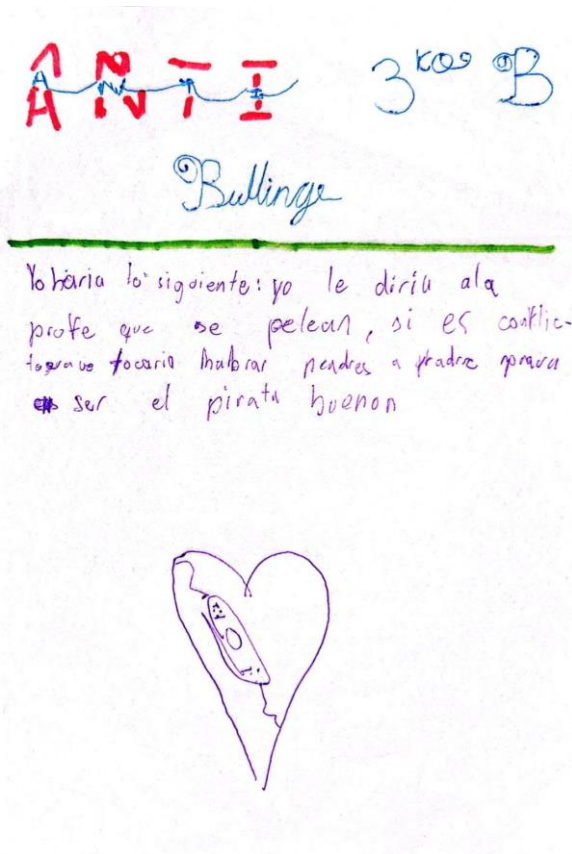 ANTI 3ros B
Bullinge
Yo haria lo siguiente: yo le diria ala
profe que se pelean, si es conflic-
tocaria padres a
ser el pirata buenon